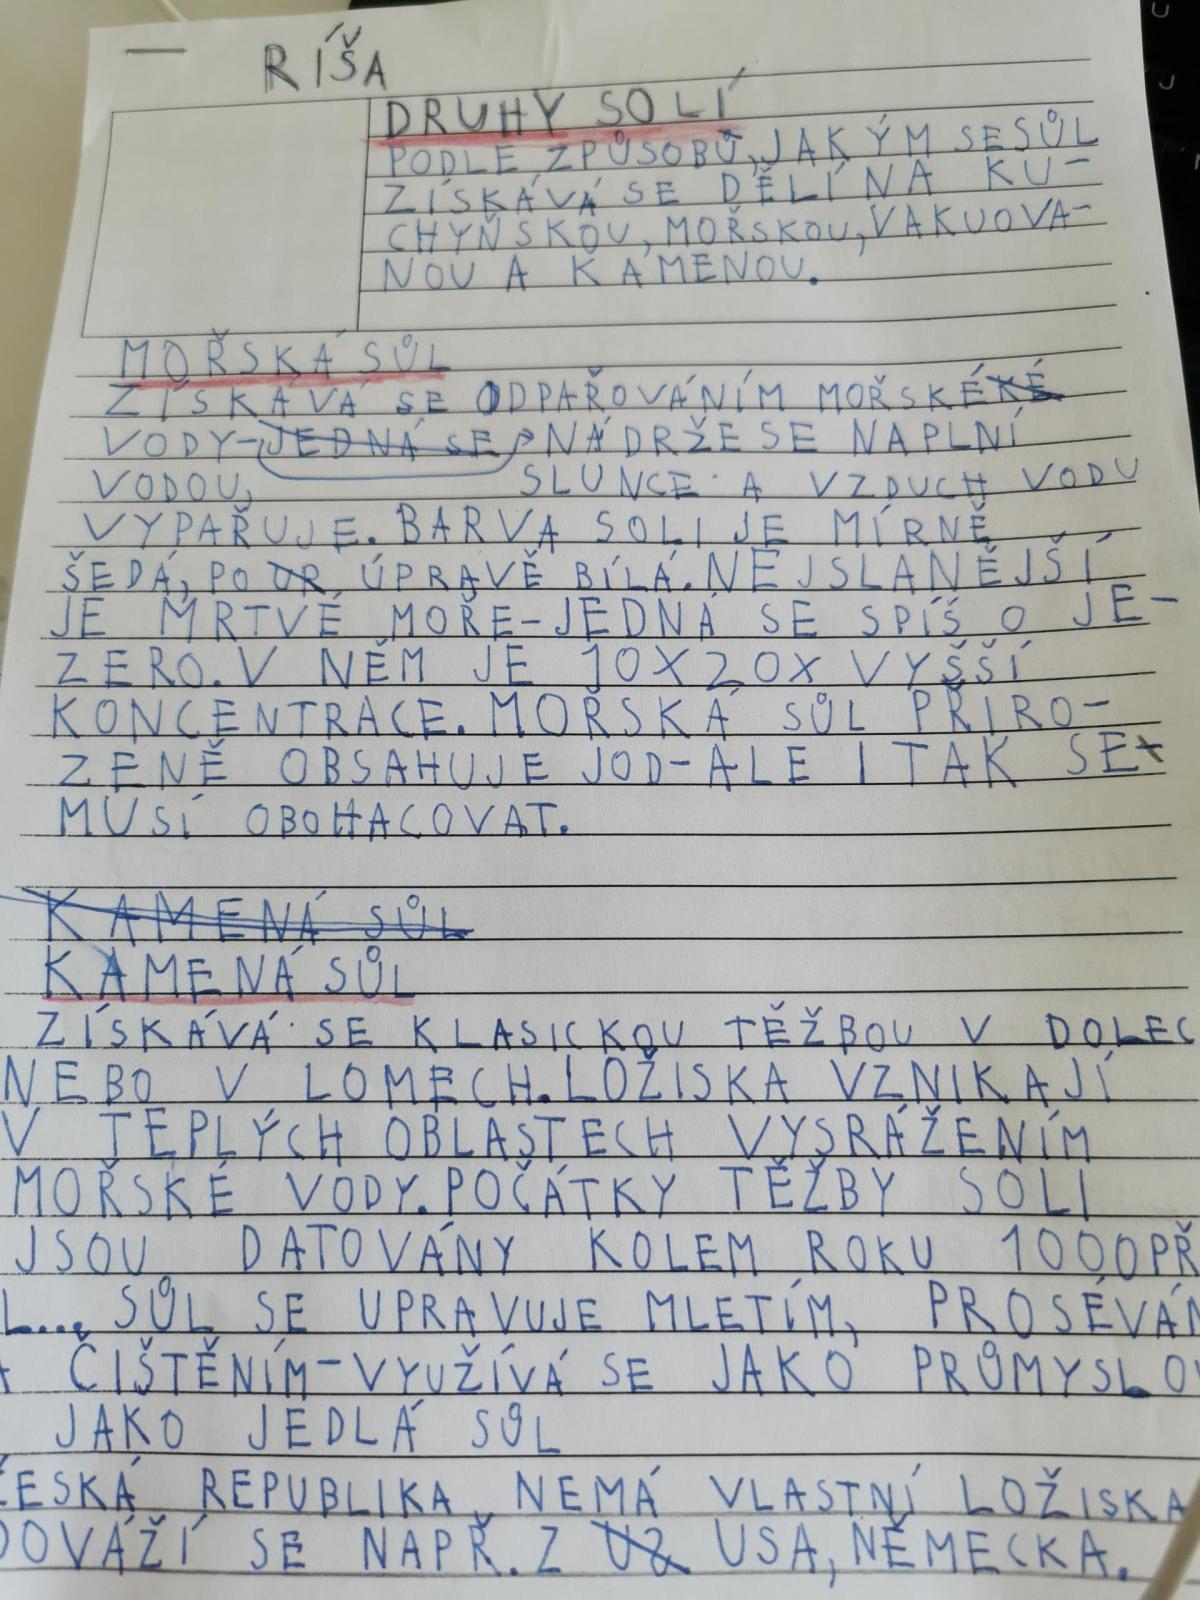 RÍŠA
DRUHY SOLÍ
PODLE ZPŮSOBŮ, JAKÝM SE SŮL
ZÍSKÁVÁ SE DĚLÍ NA KU-
CHYŇSKOU, MOŘSKOU, VAKUOVA-
NOU A KAMENOU.
MOŘSKÁ SŮL
ZÍSKÁVÁ SE ODPAŘOVÁNÍM MOŘSKÉ
VODY-JEDNÁ SE NÁDRŽE SE NAPLNÍ
VODOU, SLUNCE A VZDUCH VODU
VYPAŘUJE. BARVA SOLI JE MÍRNĚ
ŠEDÁ, PO ÚPRAVĚ BÍLÁ. NEJSLANĚJŠÍ
JE MRTVÉ MOŘE-JEDNÁ SE SPÍŠ O JE-
ZERO. V NĚM JE 10X20X VYŠŠÍ
KONCENTRACE. MOŘSKÁ SŮL PŘIRO-
ZENĚ OBSAHUJE JOD-ALE I TAK SE
MUSÍ OBOHACOVAT.
KAMENÁ SŮL
KAMENÁ SŮL
ZÍSKÁVÁ SE KLASICKOU TĚŽBOU V DOLEC
NEBO V LOMECH. LOŽISKA VZNIKAJÍ
V TEPLÝCH OBLASTECH VYSRÁŽENÍM
MOŘSKÉ VODY. POČÁTKY TĚŽBY SOLI
JSOU DATOVÁNY KOLEM ROKU 1000 PŘ
L... SŮL SE UPRAVUJE MLETÍM, PROSÉVÁN
A ČIŠTĚNÍM-VYUŽÍVÁ SE JAKO PRŮMYSLOV
JAKO JEDLÁ SŮL
ČESKÁ REPUBLIKA NEMÁ VLASTNÍ LOŽISKA
DOVÁŽÍ SE NAPŘ. Z USA, NĚMECKA.